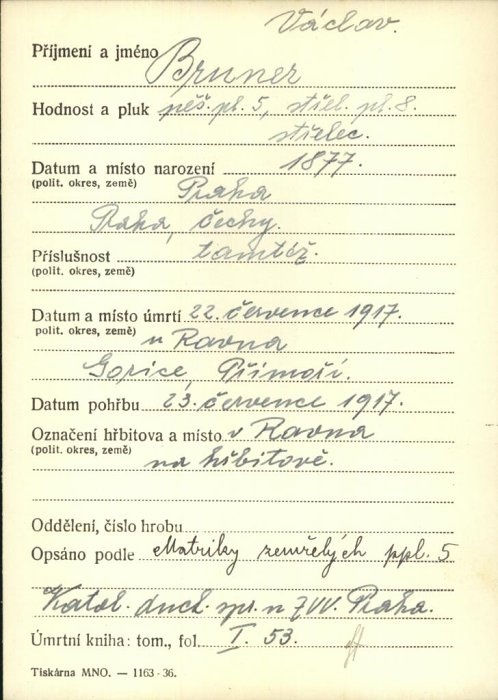 Václav.
Příjmení a jméno Bruner
Hodnost a pluk pěš. pl. 5, střel. pl. 8.
střelec.
Datum a místo narození 1877.
(polit. okres, země) Praha
Praha, Čechy.
Příslušnost tamtéž.
(polit. okres, země)
Datum a místo úmrtí 22. července 1917.
polit. okres, země) u Ravna
Gorice, Přímoří.
Datum pohřbu 23. července 1917.
Označení hřbitova a místo v Ravna
(polit. okres, země)
na hřbitově.
Oddělení, číslo hrobu
Opsáno podle Matriky zemřelých ppl. 5
Katol. duch. spr. u ZVV. Praha.
Úmrtní kniha: tom., fol. I. 53.
Tiskárna MNO. — 1163-36.